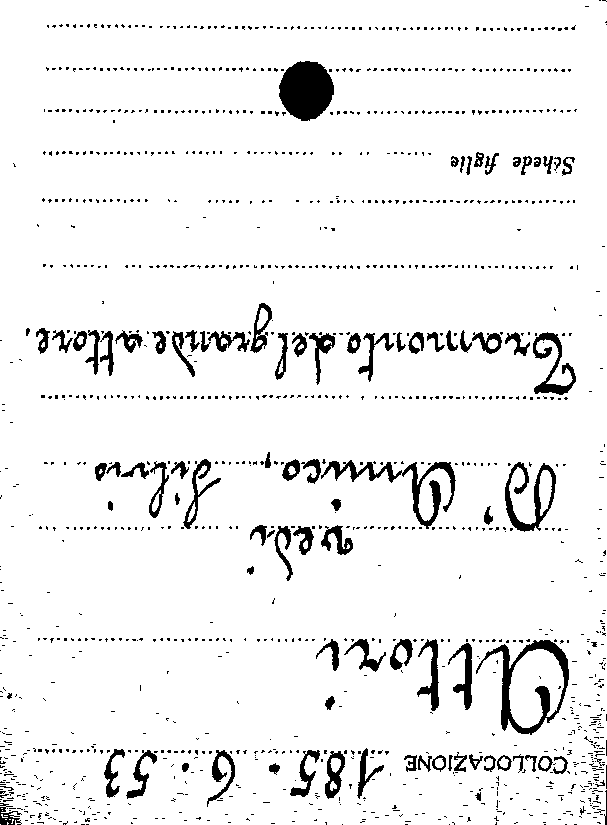 COLLOCAZIONE 185·6·53
Attori
vedi
D'Amico, Silvio
Tramonto del grande attore.
Schede figlie